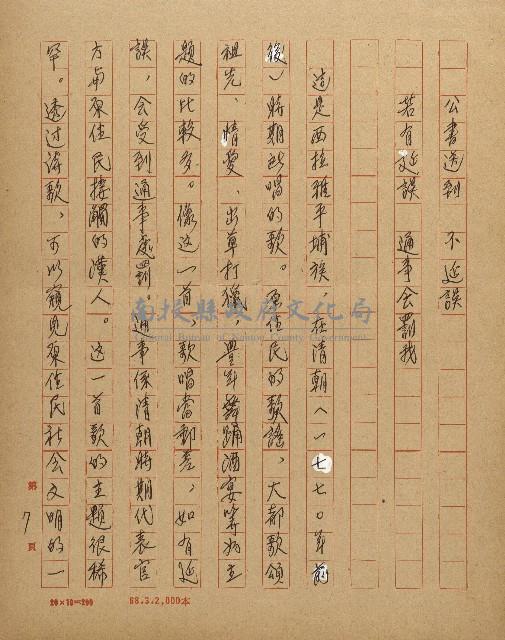 公書送到　不延誤
若有延誤　通事会罰我
這是西拉雅平埔族，在清朝（一七七０年前
後）時期所唱的歌。原住民的歌謠，大都歌頌
祖先、情愛、出草打獵、豐年舞踊酒宴等為主
題的比較多。像这一首，歌唱當郵差，如有延
誤，会受到通事處罰，通事係清朝時期代表官
方與原住民接觸的漢人。这一首歌的主題很稀
罕。透过詩歌，可以窺見原住民社会文明的一
南投縣政府文化局
Cultural Bureau of Nantou County Government
第7頁
20×10=200
68.3.2,000本